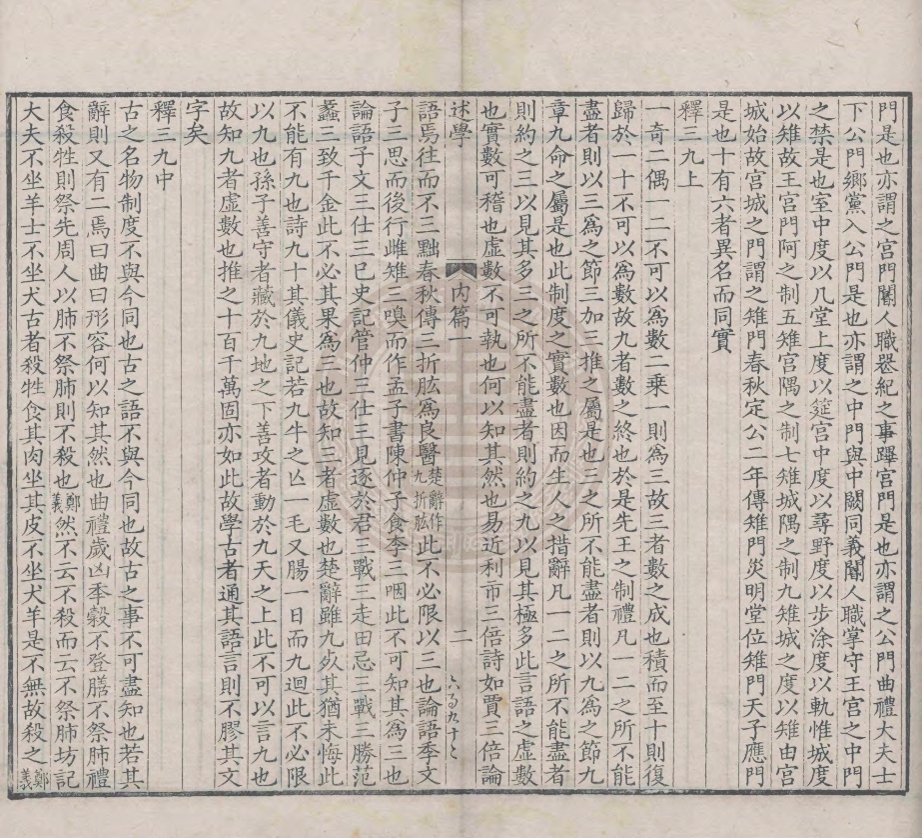 門是也亦謂之宮門閽人職喪紀之事蹕宮門是也亦謂之公門曲禮大夫士
下公門鄉黨入公門是也亦謂之中門與中闕同義閽人職掌守王宮之中門
之禁是也室中度以几堂上度以筵宮中度以尋野度以步涂度以軌惟城度
以雉故王宮門阿之制五雉宮隅之制七雉城隅之制九雉城之度以雉由宮
城始故宮城之門謂之雉門春秋定公二年傳雉門災明堂位雉門天子應門
是也十有六者異名而同實
釋三九上
一奇二偶一二不可以爲數二乘一則爲三故三者數之成也積而至十則復
歸於一十不可以爲數故九者數之終也於是先王之制禮凡一二之所不能
盡者則以三爲之節三加三推之屬是也三之所不能盡者則以九爲之節九
章九命之屬是也此制度之實數也因而生人之措辭凡一二之所不能盡者
則約之三以見其多三之所不能盡者則約之九以見其極多此言語之虛數
也實數可稽也虛數不可執也何以知其然也易近利市三倍詩如賈三倍論
述學 內篇一 二
語焉往而不三黜春秋傳三折肱爲良醫楚辭作九折肱此不必限以三也論語季文
子三思而後行雌雉三嗅而作孟子書陳仲子食李三咽此不可知其爲三也
論語子文三仕三已史記管仲三仕三見逐於君三戰三走田忌三戰三勝范
蠡三致千金此不必其果爲三也故知三者虛數也楚辭雖九死其猶未悔此
不能有九也詩九十其儀史記若九牛之亡一毛又腸一日而九迴此不必限
以九也孫子善守者藏於九地之下善攻者動於九天之上此不可以言九也
故知九者虛數也推之十百千萬固亦如此故學古者通其語言則不膠其文
字矣
釋三九中
古之名物制度不與今同也古之語不與今同也故古之事不可盡知也若其
辭則又有二焉曰曲曰形容何以知其然也曲禮歲凶年穀不登膳不祭肺禮
食殺牲則祭先周人以肺不祭肺則不殺也鄭義然不云不殺而云不祭肺坊記
大夫不坐羊士不坐犬古者殺牲食其肉坐其皮不坐犬羊是不無故殺之鄭義